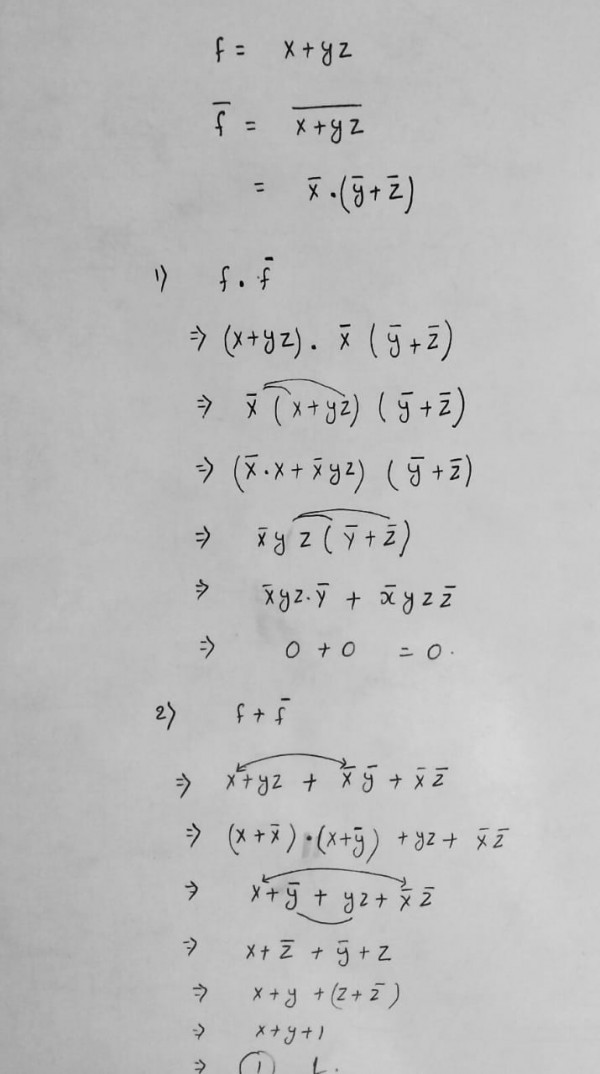 f = x + yz
f̅ = \overline{x + yz}
= x̅ . (y̅ + z̅)
1) f . f̅
⇒ (x + yz) . x̅ (y̅ + z̅)
⇒ x̅ (x + yz) (y̅ + z̅)
⇒ (x̅ . x + x̅yz) (y̅ + z̅)
⇒ x̅y z (y̅ + z̅)
⇒ x̅yz . y̅ + x̅yzz̅
⇒ 0 + 0 = 0.
2) f + f̅
⇒ x + yz + x̅y̅ + x̅z̅
⇒ (x + x̅) . (x + y̅) + yz + x̅z̅
⇒ x + y̅ + yz + x̅z̅
⇒ x + z̅ + y̅ + z
⇒ x + y + (z + z̅)
⇒ x + y + 1
⇒ 1